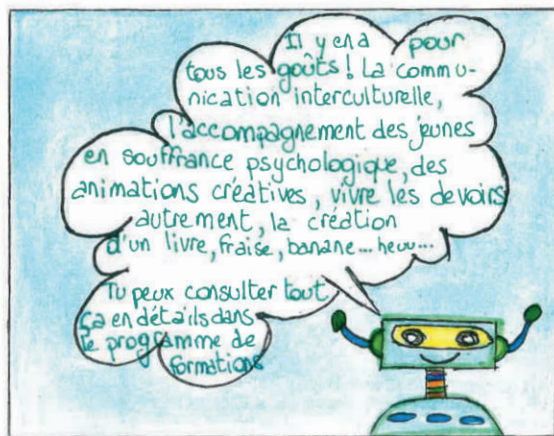 Il y en a pour
tous les goûts ! La commu-
nication interculturelle,
l'accompagnement des jeunes
en souffrance psychologique, des
animations créatives, vivre les devoirs
autrement, la création
d'un livre, fraise, banane... heuu...
Tu peux consulter tout
ça en détails dans
le programme de
formations